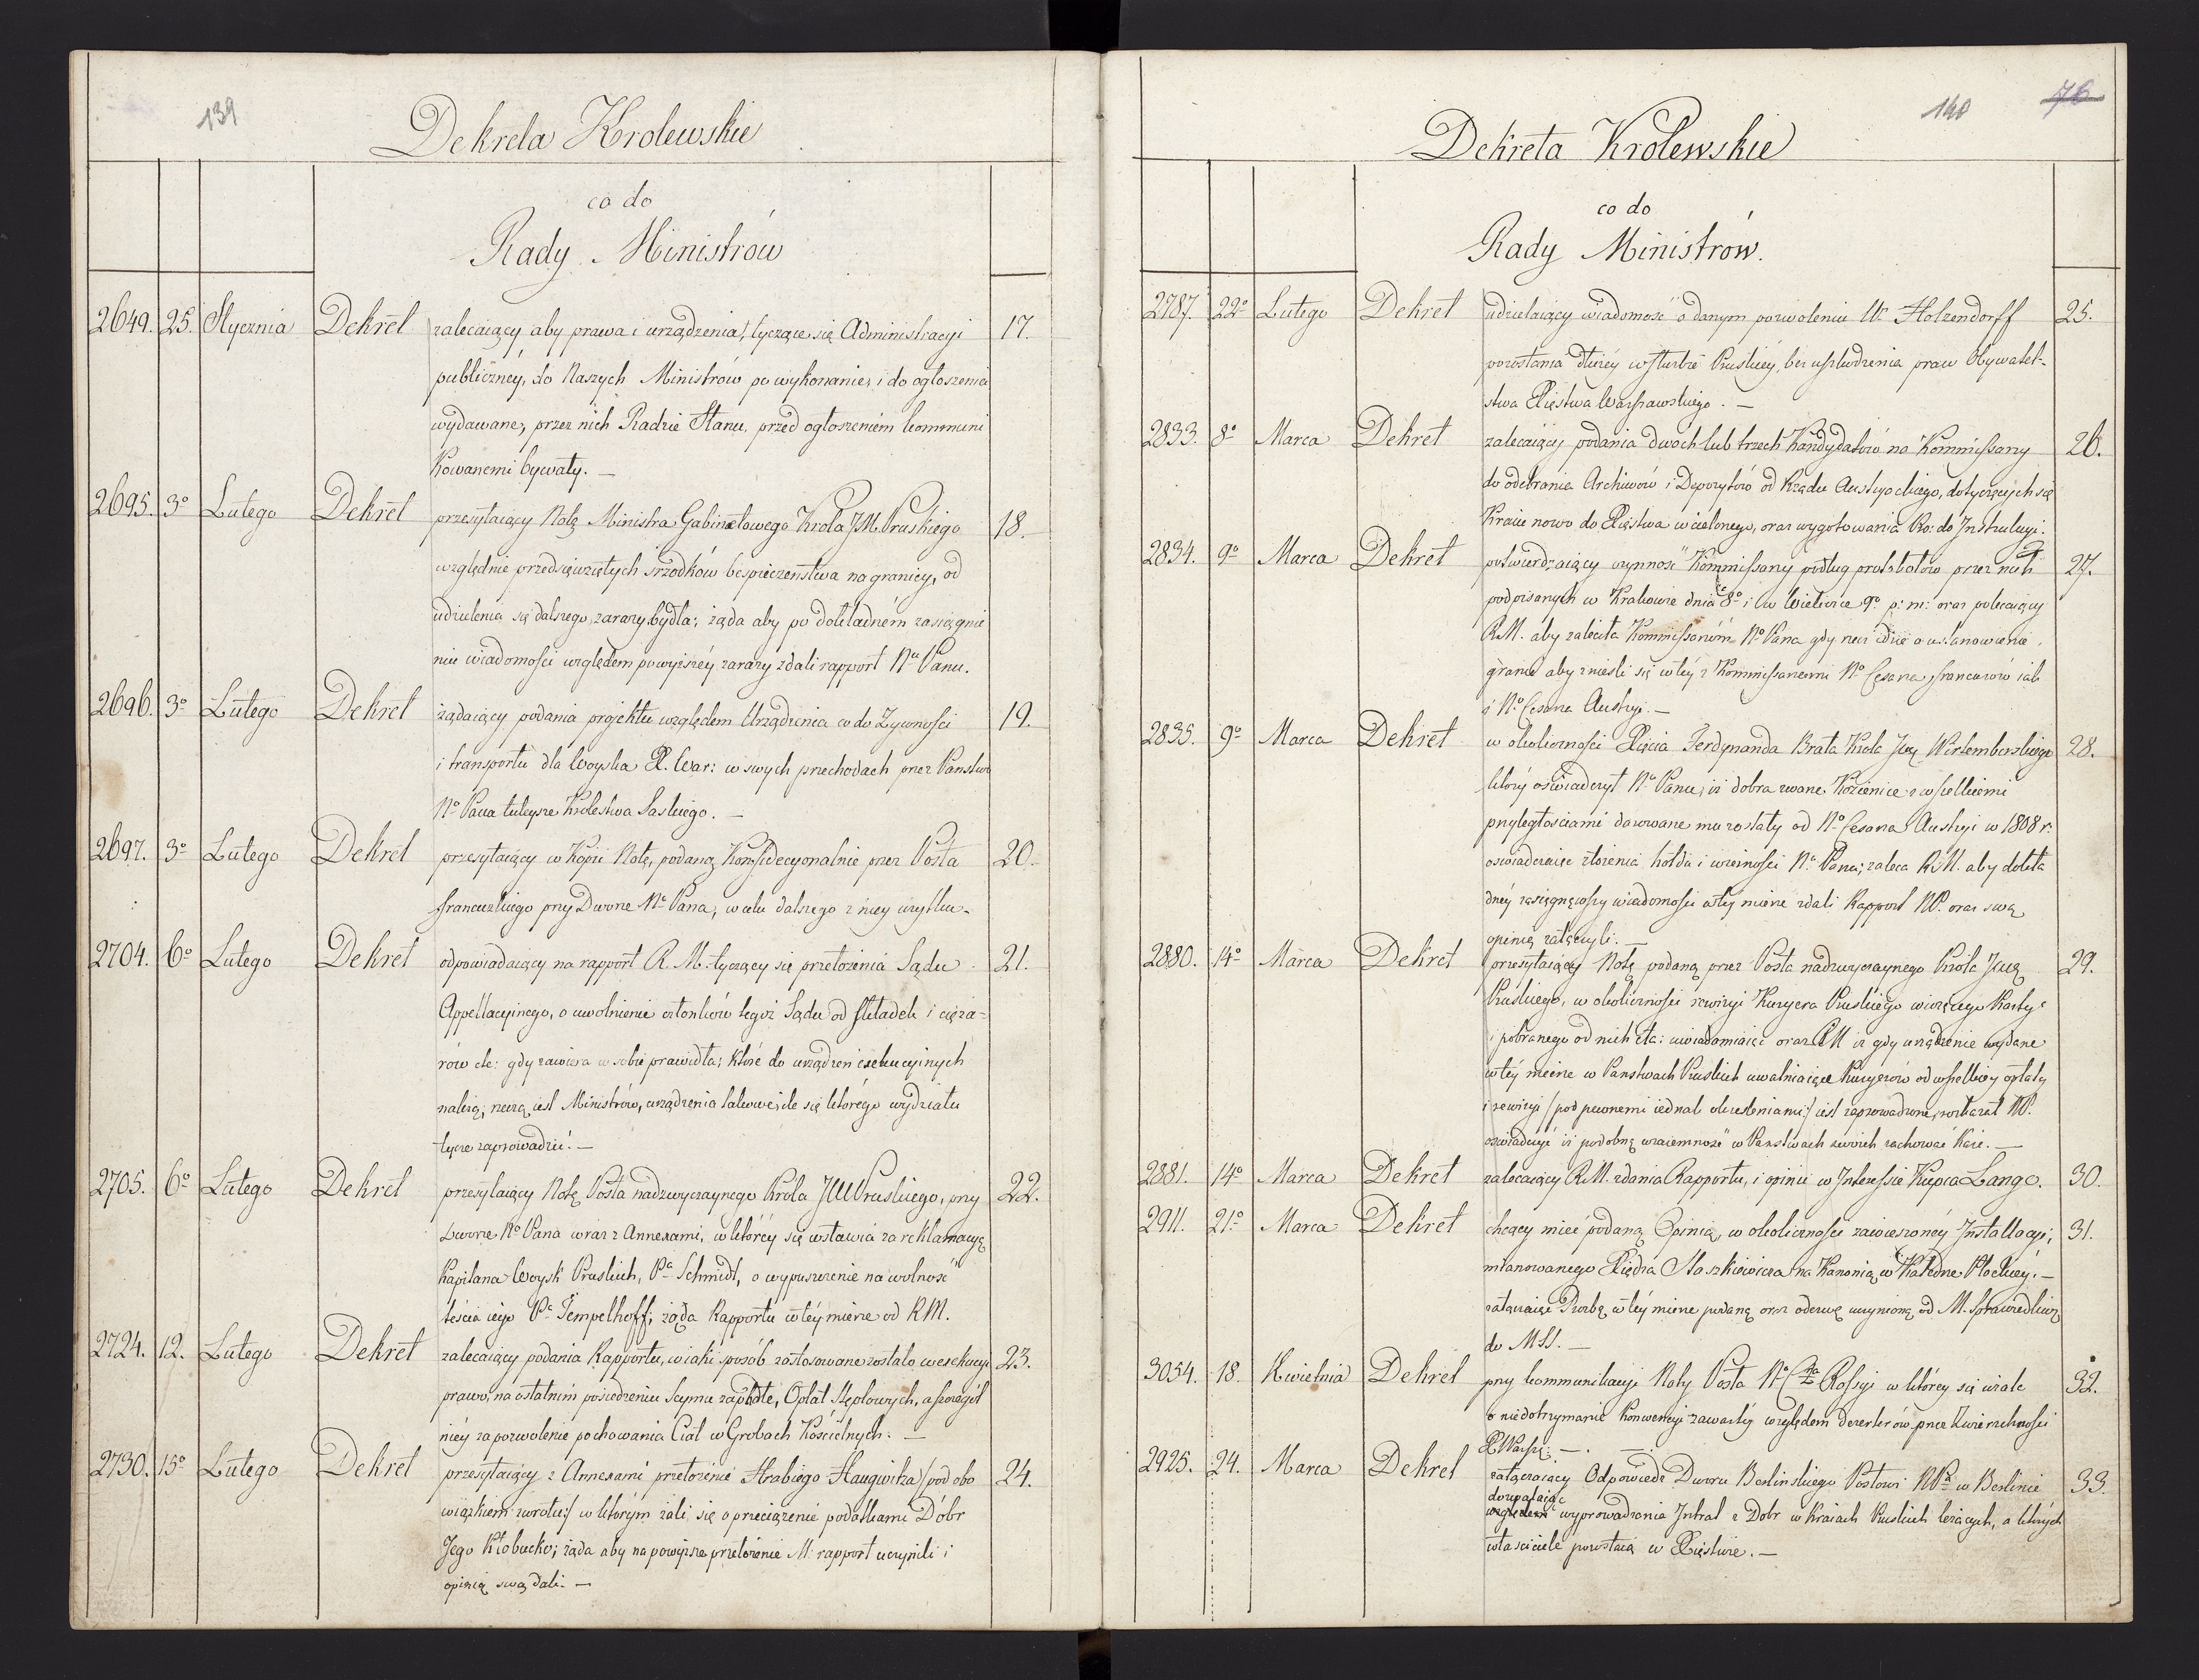 139
Dekreta Krolewskie
co do
Rady Ministrów
2649. 25. Stycznia Dekret zalecaiący aby prawa i urządzenia, tyczące się Administracyi 17.
publicznéy, do Naszych Ministrów po wykonanie, i do ogłoszenia
wydawane, przez nich Radzie Stanu, przed ogłoszeniem kommuni
kowanemi bywały. —
2695. 3o Lutego Dekret przesyłaiący Notę Ministra Gabinetowego Krola JM. Pruskiego 18.
względnie przedsięwziętych śrzodków bespieczeństwa na granicy, od
udzielenia się dalszego zarazy bydła; żąda aby po dokładném zasiągnie
niu wiadomości względem powyższéy zarazy zdali rapport Nu Panu.
2696. 3o Lutego Dekret żądaiący podania projektu względem Urządzenia co do Zywności 19.
i transportu dla Woyska X. War: w swych przechodach przez Państwa
No Pana tuteysze Królestwa Saskiego. —
2697. 3o Lutego Dekret przesyłaiący w Kopii Notę, podaną Konfidecyonalnie przez Posła 20.
francuzkiego przy Dworze No Pana, w celu dalszego z niey użytku.
2704. 6o Lutego Dekret odpowiadaiący na rapport R. M. tyczący się przełożenia Sądu 21.
Appellacyinego, o uwolnienie członków tegoż Sądu od składek i cięża=
rów etc: gdy zawiera w sobie prawidła; które do urządzeń exekucyinych
należą, rzeczą iest Ministrów, urządzenia takowe, ile się którégo wydziału
tycze zaprowadzić. —
2705. 6o Lutego Dekret przesyłaiący Notę Posła nadzwyczaynego Krola JM Pruskiego, przy 22.
Dworze No Pana wraz z Annexami, w którey się wstawia za reklamacyą
Kapitana Woysk Pruskich, Pa Schmidt, o wypuszczenie na wolność
teścia iego Pa Tempelhoff; żąda Rapportu w téy mierze od RM.
2724. 12. Lutego Dekret zalecaiący podania Rapportu, w iaki sposób zastosowane zostało w exekucyi 23.
prawo, na ostatnim posiedzeniu Seymu zapadłe, Opłat Stęplowych, a szczegól
niéy za pozwolenie pochowania Ciał w Grobach Kościelnych. —
2730. 15o Lutego Dekret przesyłaiący z Annexami przełożenie Hrabiego Haugwitza /: pod obo 24.
wiązkiem zwrotu:/ w którym żali się o przeciążenie podatkami Dóbr
Jego Kłobucko; żąda aby na powyższe przełożenie M. rapport uczynili i
opinią swą dali. —
140 76
Dekreta Krolewskie
co do
Rady Ministrów.
2787. 22o Lutego Dekret udzielaiący wiadomość o danym pozwoleniu W. Holzendorff 25.
pozostania dłużéy w służbie Pruskiéy, bez uszkodzenia praw Obywatel-
stwa Xięstwa Warszawskiego. —
2833. 8o Marca Dekret zalecaiący podania dwóch lub trzech Kandydatów na Kommissarzy 26.
do odebrania Archiwów i Depozytów od Rządu Austryackiego, dotyczących się
Kraiu nowo do Xięstwa wcielonego, oraz wygotowania Ro: do Instrukcyi.
2834. 9o Marca Dekret potwierdzaiący czynność Kommissarzy podług protokołów przez nich 27.
podpisanych w Krakowie dnia 8o i w Wieliczce 9o p: m: oraz polecaiący
R.M. aby zaleciła Kommissarzóm No Pana gdy rzecz idzie o ustanowienie
granic aby znieśli się w téy z Kommissarzemi No Cesarza francuzów iak
i No Cesarza Austryi. —
2835. 9o Marca Dekret w okoliczności Xięcia Ferdynanda Brata Krola Jmci Wirtemberskiego 28.
który oświadczył Nu Panu, iż dobra zwane Kozienice z wszelkiemi
przyległościami darowane mu zostały od No Cesarza Austryi w 1808 r.
oświadczaiąc złożenia hołdu i wierności Nu Panu; zaleca R.M. aby dokła
dnéy zasięgnąwszy wiadomości w téy mierze zdali Rapport NP. oraz swą
opinią załączyli. —
2880. 14o Marca Dekret przesyłaiący Notę podaną przez Posła nadzwyczaynego Krola Jmci 29.
Pruskiego, w okoliczności rewizyi Kuryera Pruskiego wiozącego Karty
i pobranego od nich cła: uwiadomiaiąc oraz RM iż gdy urządzenie wydane
w téy mierze w Państwach Pruskich uwalniaiące Kuryerów od wszelkiey opłaty
i rewizyi /: pod pewnemi iednak określeniami:/ iest zaprowadzone, rozkazał NP.
oświadczyć iż podobną wzaiemność w Państwach swoich zachować Każe. —
2881. 14o Marca Dekret zalecaiący R.M. zdania Rapportu, i opinii w Interessie Kupca Lange. 30.
2911. 21o Marca Dekret chcący mieć podaną Opinią, w okoliczności zawieszonéy Installacyi, 31.
mianowanego Xiędza Staszkiewicza na Kanonią w Katedrze Płockiéy. —
załączaiąc Prozbę w téy mierze podaną oraz odezwę uczynioną od M. Sprawiedliwo
do MSS. —
3054. 18. Kwietnia Dekret przy kommunikacyi Noty Posła No Cza Rossyi w którey się użala 32.
o niedotrzymanie Konwencyi zawartéy względem dezerterów przez Zwierzchności
X Warsz: —
2925. 24. Marca Dekret załączaiący Odpowiedź Dworu Berlinskiego Posłowi NPa w Berlinie 33.
dozwalaiąc
względem wyprowadzenia Intrat z Dobr w Kraiach Pruskich leżących, a których
własciciele pozostaią w Xięstwie. —